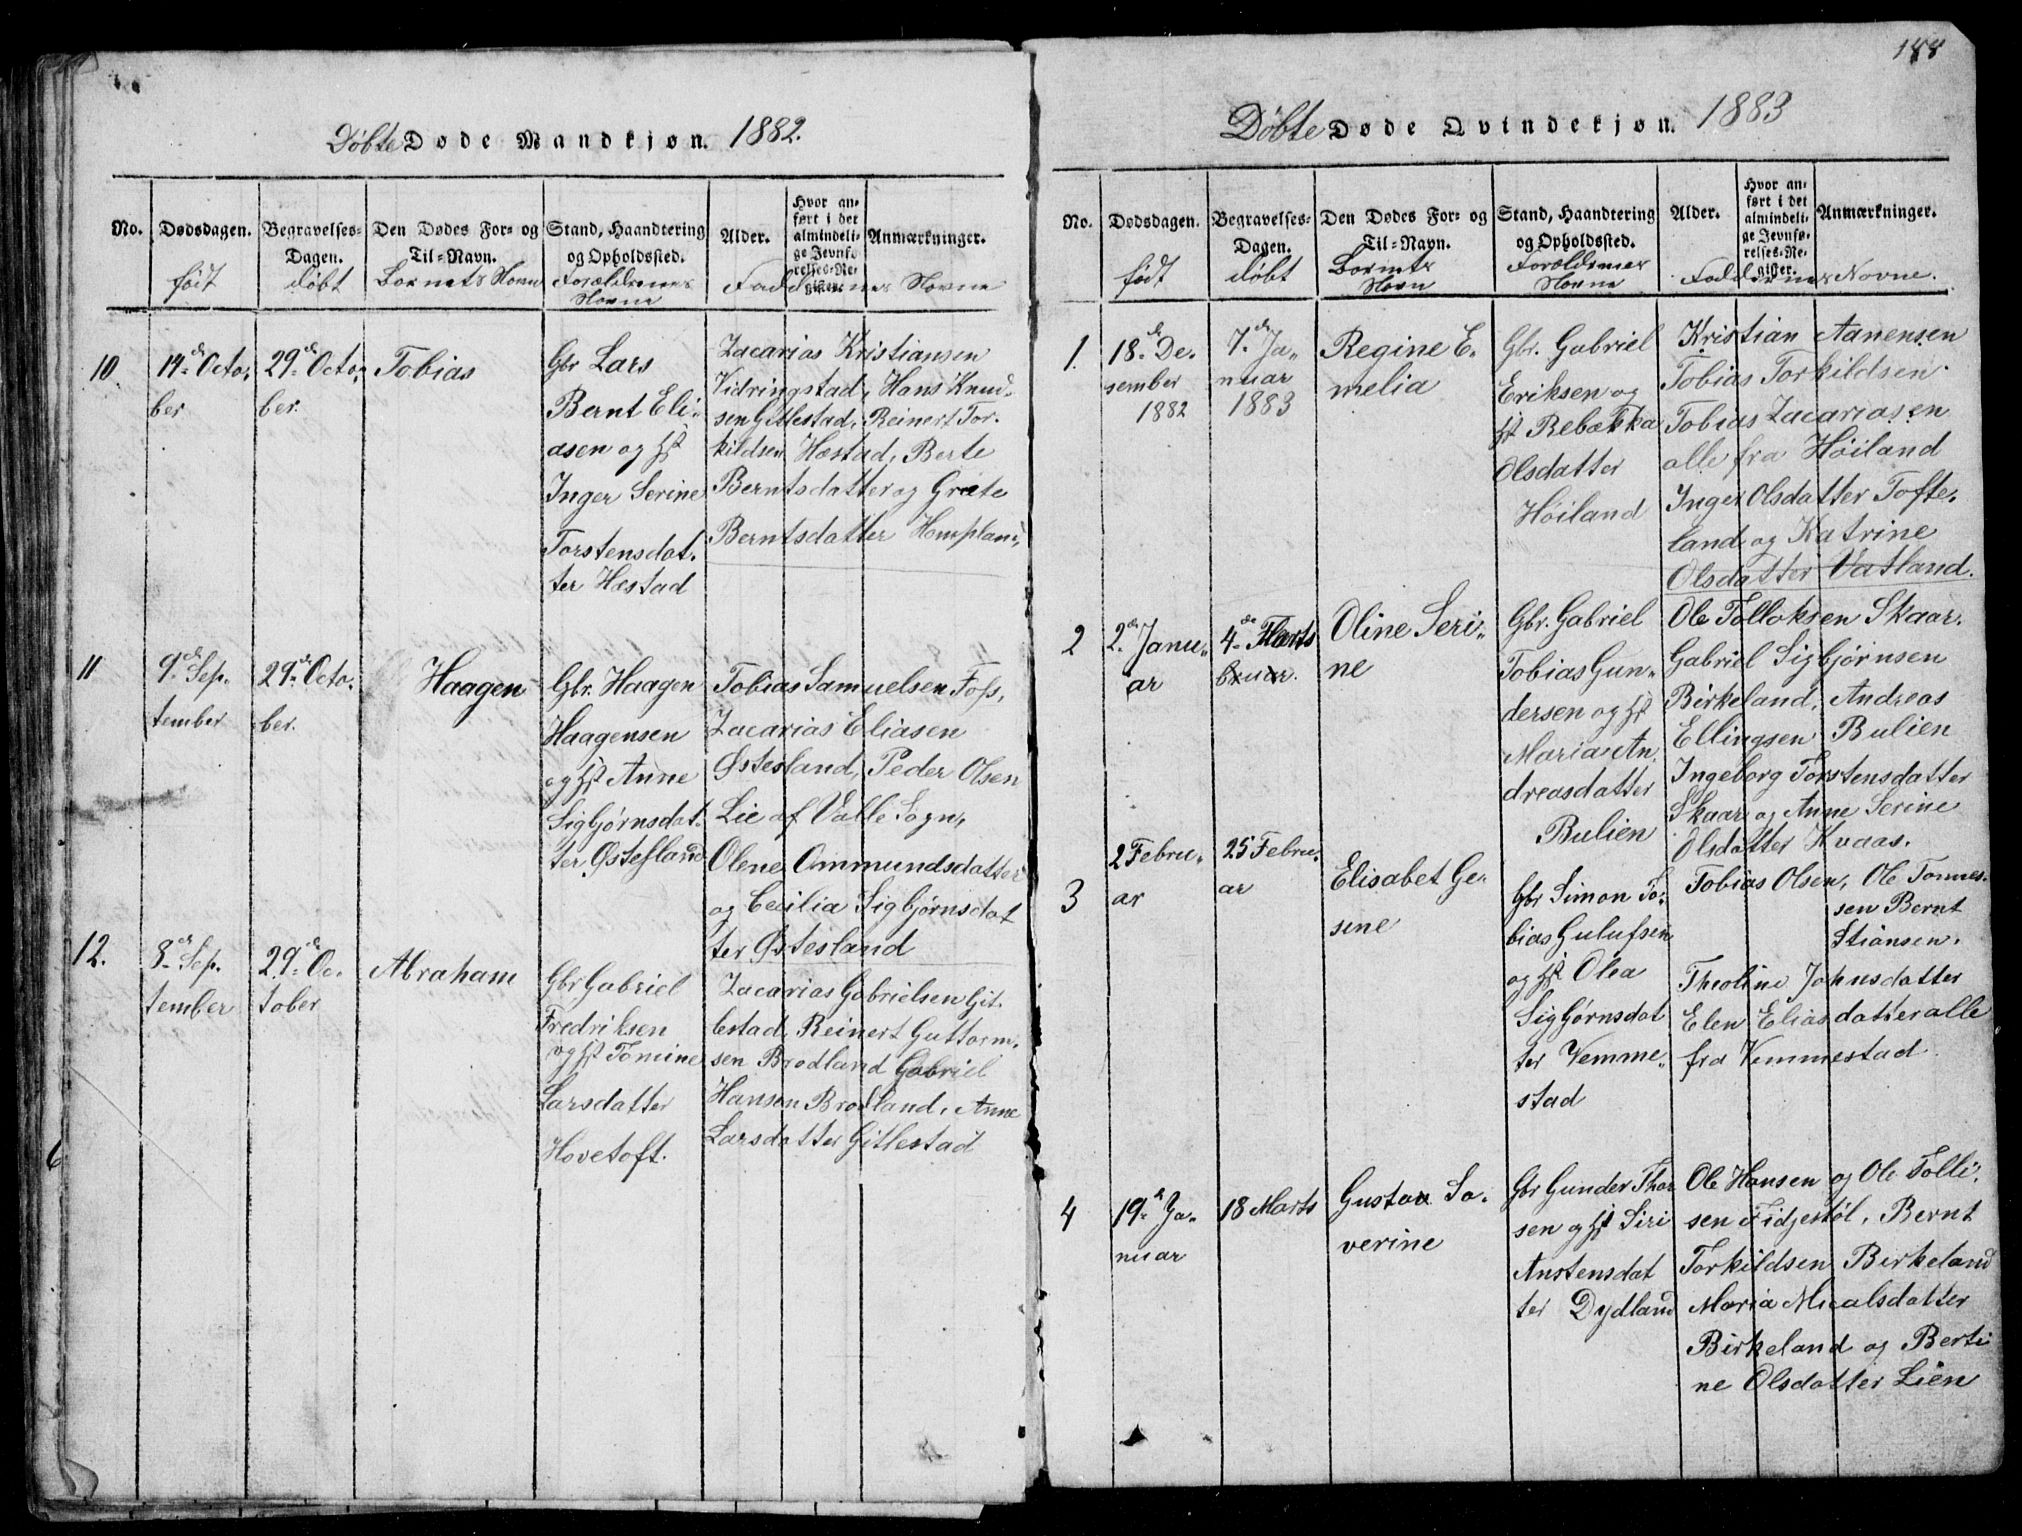 Døbte Døde Mandkjøn. 1882.
No. Dødsdagen. Begravelses-Dagen. Den Dødes For- og Til-Navn. Stand, Haandtering og Opholdssted. Alder. Hvor anført i det almindelige Jevnførelses-Register. Anmærkninger.
født døbt Barnets Navn Forældrenes Navne Faddernes Navne
10 14de Octo-
ber
29de Octo-
ber.
Tobias
Gbr Lars
Bernt Eli-
asen og Hst
Inger Serine
Torstensdat-
ter Hæstad
Zacarias Kristiansen
Vidringstad, Hans Knud-
sen Gitlestad, Reinert Tor-
kildsen Hæstad, Berte
Berntsdatter og Grete
Berntsdatter
11 9de Sep-
tember
29de Octo-
ber.
Haagen
Gbr. Haagen
Haagensen
og Hst Anne
Sigbjørnsdat-
ter Østesland
Tobias Samuelsen Foss,
Zacarias Eliasen
Østesland, Peder Olsen
Lie af Valle Sogn,
Olene Ommundsdatter
og Cecilia Sigbjørnsdat
ter Østesland
12. 8de Sep-
tember
29de Oc-
tober
Abraham
Gbr Gabriel
Fredriksen
og Hst Tomine
Larsdatter
Hovetoft.
Zacarias Gabrielsen Git-
lestad Reinert Guttorm-
sen Brodland Gabriel
Hansen Brodland, Anne
Larsdatter Gitlestad
6
188
Døbte Døde Qvindekjøn. 1883
No. Dødsdagen. Begravelses-Dagen. Den Dødes For- og Til-Navn. Stand, Haandtering og Opholdssted. Alder. Hvor anført i det almindelige Jevnførelses-Register. Anmærkninger.
født døbt Barnets Navn Forældrenes Navne Faddernes Navne.
1. 18de De-
sember
1882
7de Ja-
nuar
1883
Regine E-
melia
Gbr. Gabriel
Eriksen og
Hst Rebækka
Olsdatter
Høiland
Kristian Aanensen
Tobias Torkildsen
Tobias Zacariasen
alle fra Høiland
Inger Olsdatter Tofte-
land og Katrine
Olsdatter Vatland.
2 2de Janu-
ar
4de Marts
bruar.
Oline Seri-
ne
Gbr. Gabriel
Tobias Gun-
dersen og Hst
Maria An-
dreasdatter
Bulien
Ole Tolloksen Skaar.
Gabriel Sigbjørnsen
Birkeland, Andreas
Ellingsen Bulien
Ingeborg Torstensdatter
Skaar og Anne Serine
Olsdatter Kvaas.
3 2 Febru-
ar
25 Febru-
ar
Elisabet Ge-
sine
Gbr Simon To-
bias Gulufsen
og Hst Olea
Sigbjørnsdat
ter Vemme-
stad
Tobias Olsen, Ole Tønnes-
sen Bernt
Stiansen.
Theoline Johnsdatter
Elen Eliasdatter alle
fra Vemmestad
4 19de Ja-
nuar
18 Marts
Gustava Se-
verine
Gbr Gunder Thor
sen og Hst Siri
Anstensdat
ter Dydland
Ole Hansen og Ole Tolli-
sen Fidjestøl, Bernt
Torkildsen Birkeland
Maria Micalsdatter
Birkeland og Berti-
ne Olsdatter Lien